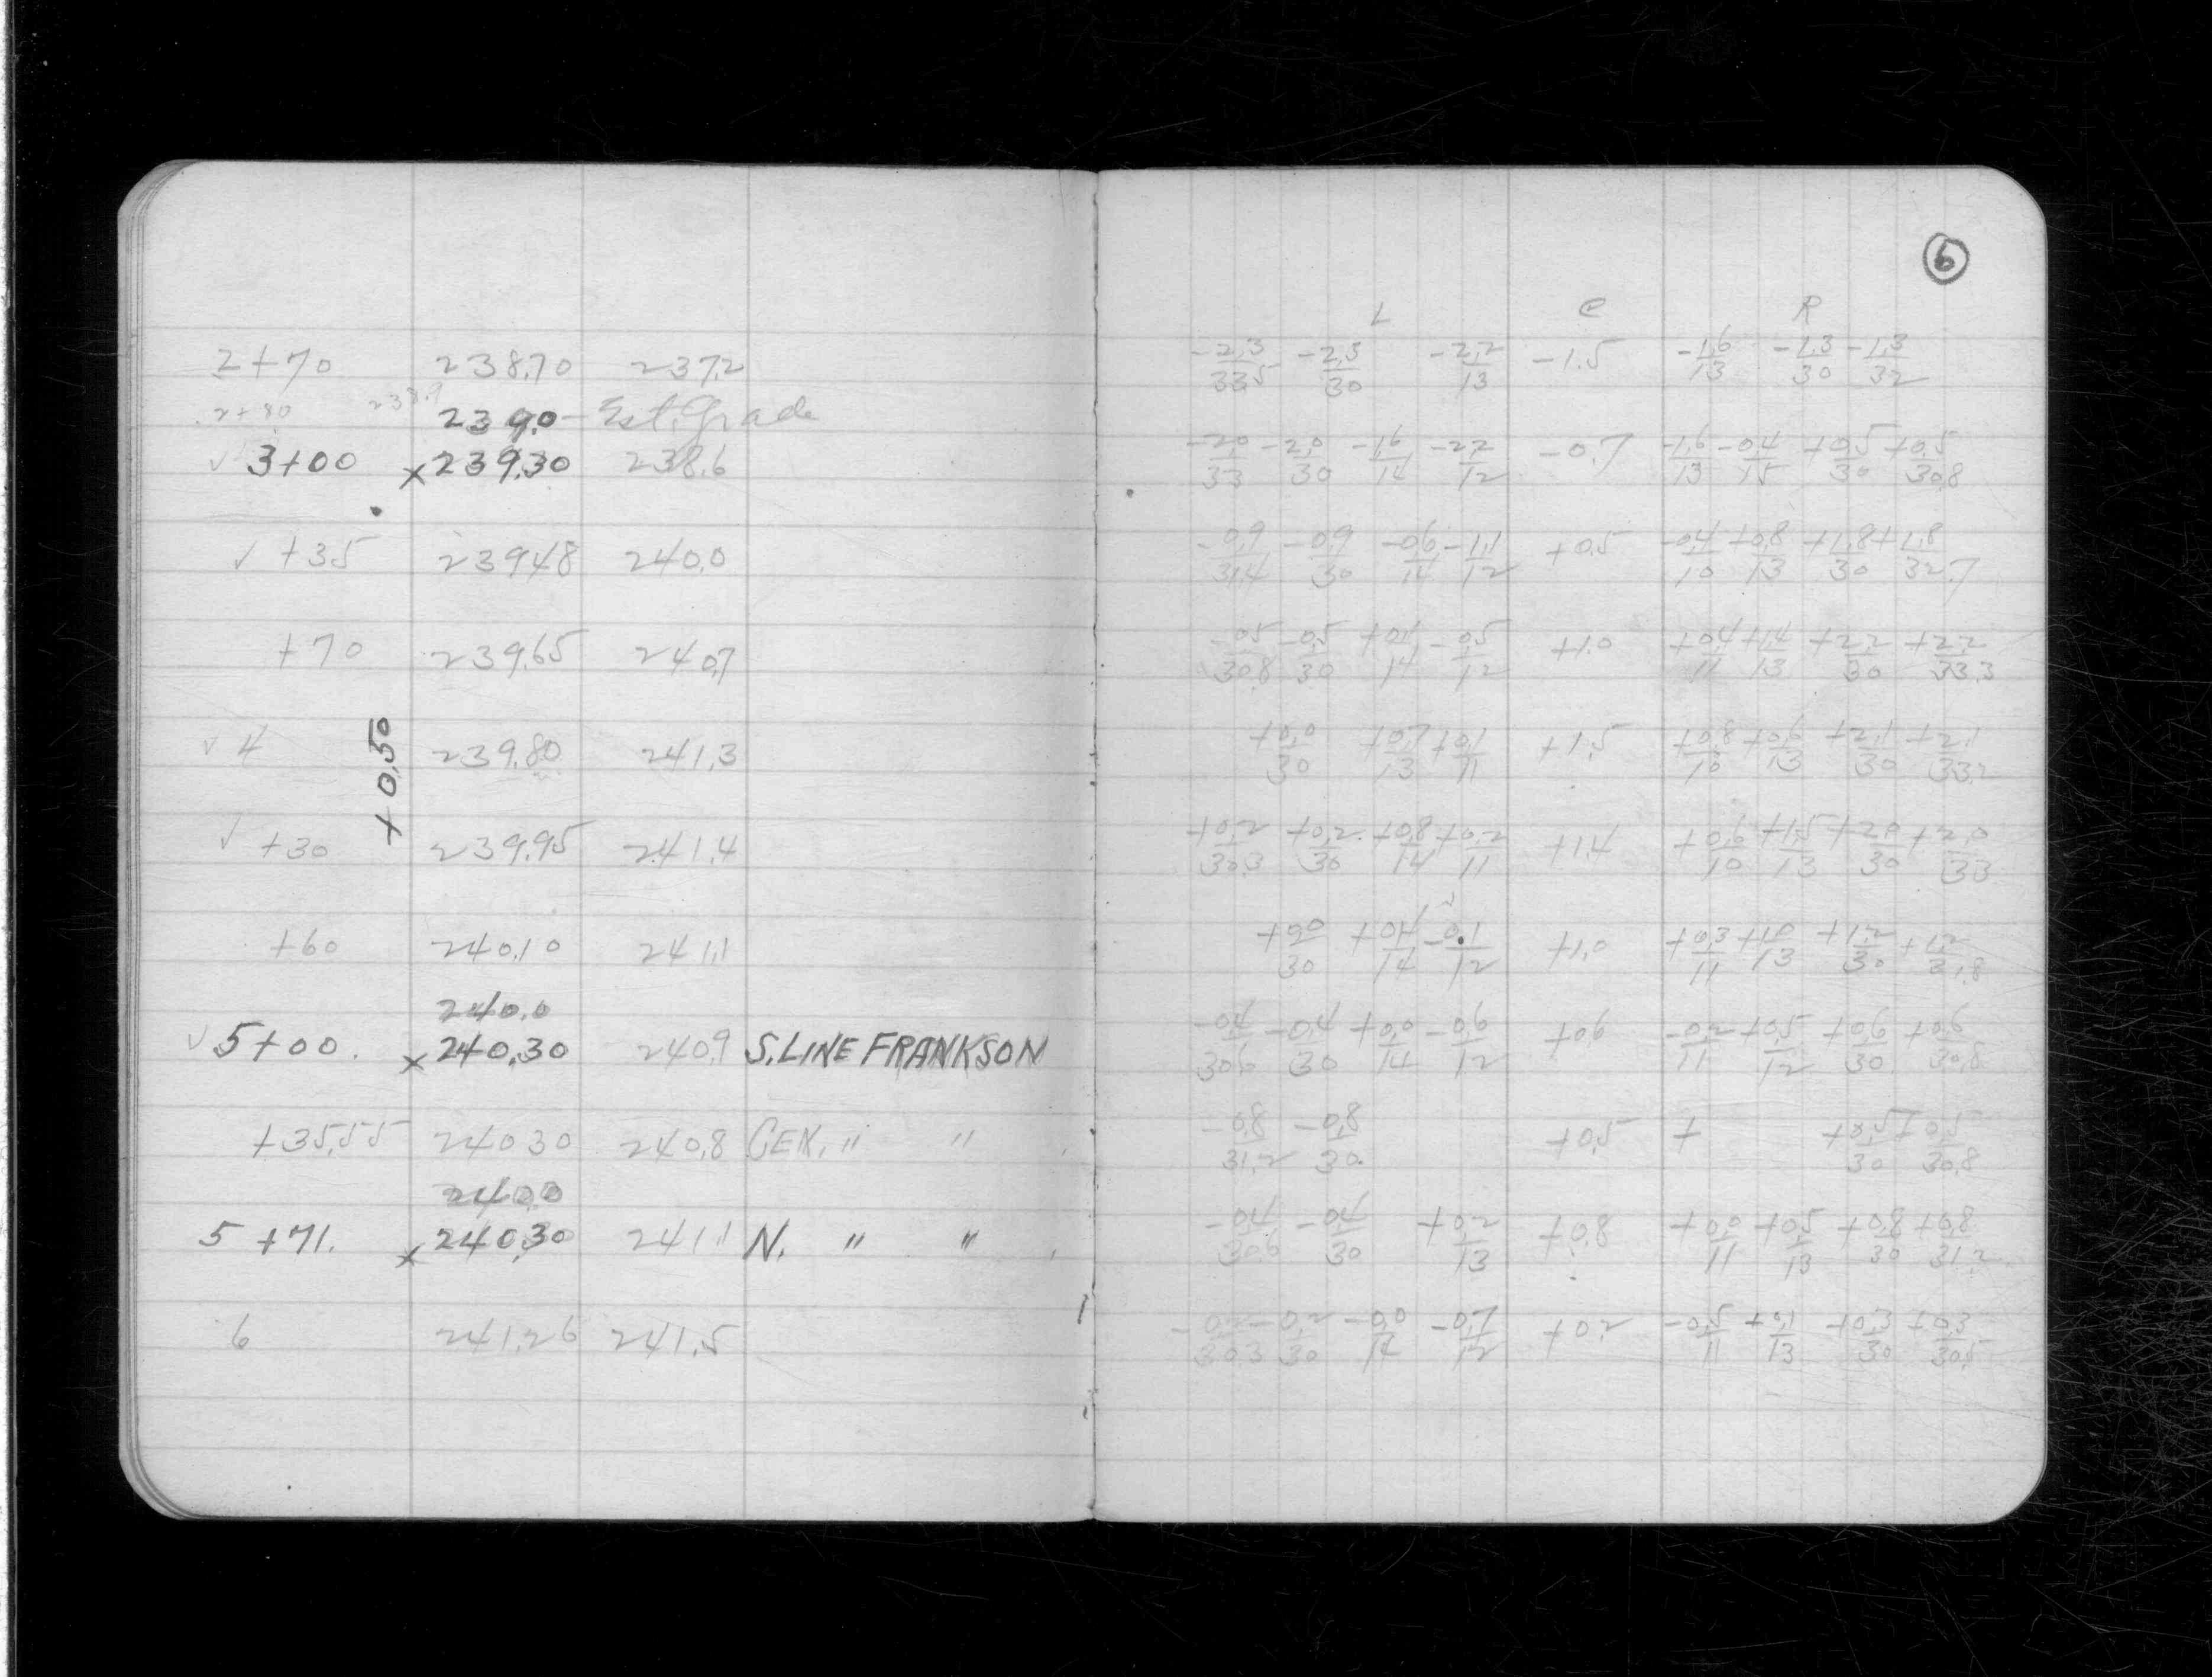 6
L C R
2+70 238.70 237.2 -2.3/33.5 -2.3/30 -2.2/13 -1.5 -1.6/13 -1.3/30 -1.3/32
2+80 238.9 239.0 - Est. Grade
✓ 3+00 x 239.30 238.6 -2.0/33 -2.0/30 -1.6/14 -2.2/12 -0.7 -1.6/13 -0.4/15 +0.5/30 +0.5/30.8
✓ +35 239.48 240.0 -0.9/31.4 -0.9/30 -0.6/14 -1.1/12 +0.5 -0.4/10 +0.8/13 +1.8/30 +1.8/32.7
+70 239.65 240.7 -0.5/30.8 -0.5/30 +0.1/14 -0.5/12 +1.0 +0.4/11 +1.4/13 +2.2/30 +2.2/33.3
✓ 4 239.80 241.3 +0.0/30 +0.7/13 +0.1/11 +1.5 +0.8/10 +0.6/13 +2.1/30 +2.1/33.2
+0.50
✓ +30 239.95 241.4 +0.2/30.3 +0.2/30 +0.8/14 +0.2/11 +1.4 +0.6/10 +1.5/13 +2.0/30 +2.0/33
+60 240.10 241.1 +0.0/30 +0.4/14 -0.1/12 +1.0 +0.3/11 +1.0/13 +1.2/30 +1.2/31.8
240.0
✓ 5+00. x 240.30 240.9 S. LINE FRANKSON -0.4/30.6 -0.4/30 +0.0/14 -0.6/12 +0.6 -0.2/11 +0.5/12 +0.6/30 +0.6/30.8
+35.55 240.30 240.8 CEN. " " -0.8/31.2 -0.8/30. +0.5 + +0.5/30 +0.5/30.8
240.0
5+71. x 240.30 241.1 N. " " -0.4/30.6 -0.4/30 +0.2/13 +0.8 +0.0/11 +0.5/13 +0.8/30 +0.8/31.2
6 241.26 241.5 -0.2/30.3 -0.2/30 -0.0/14 -0.7/12 +0.2 -0.5/11 +0.1/13 +0.3/30 +0.3/30.5